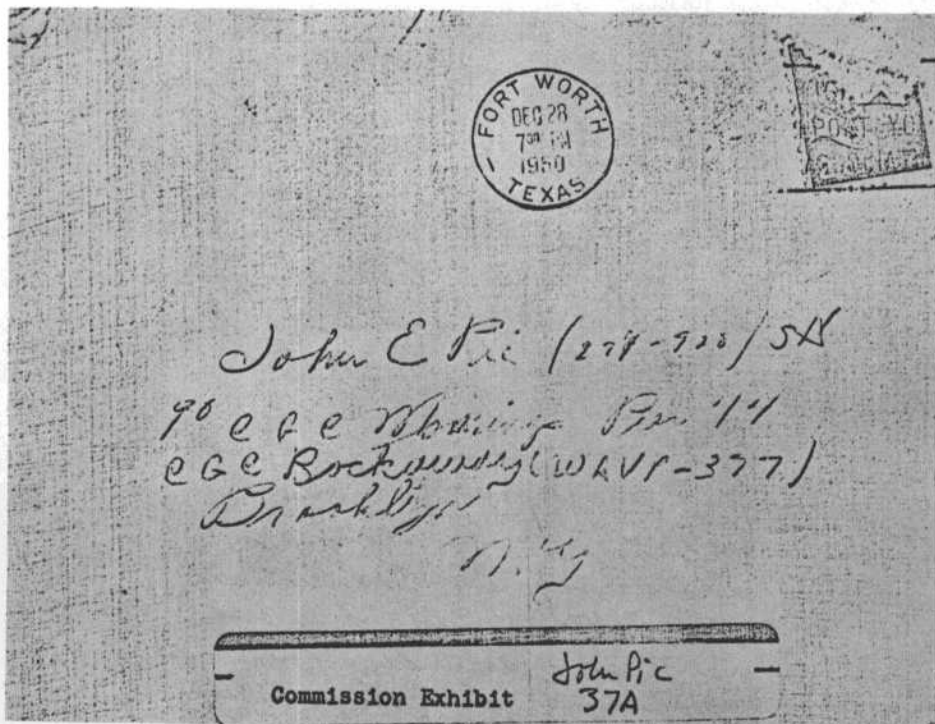 FORT WORTH
DEC 28
7 30 PM
1950
TEXAS
John E Pic (278-920) SK
% CGC Mooring Pier
CGC Rockaway (WAVP-377)
Brooklyn
N.Y
John Pic
Commission Exhibit 37A